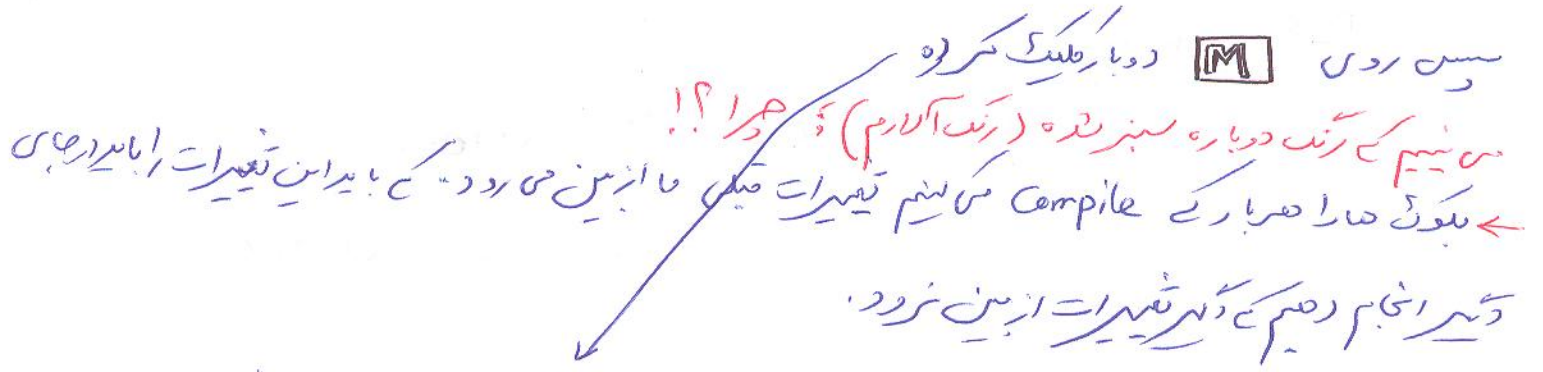 سپس روی M دوبار کلیک کرده
می بینیم که رنگ دوباره سبز شده (رنگ آلارم) ؛ چرا؟!
← بلوک ها را هر بار که Compile می کنیم تغییرات قبلی ما از بین می رود. که باید این تغییرات را باید در جای
دیگر انجام دهیم که دیگر تغییرات از بین نرود.